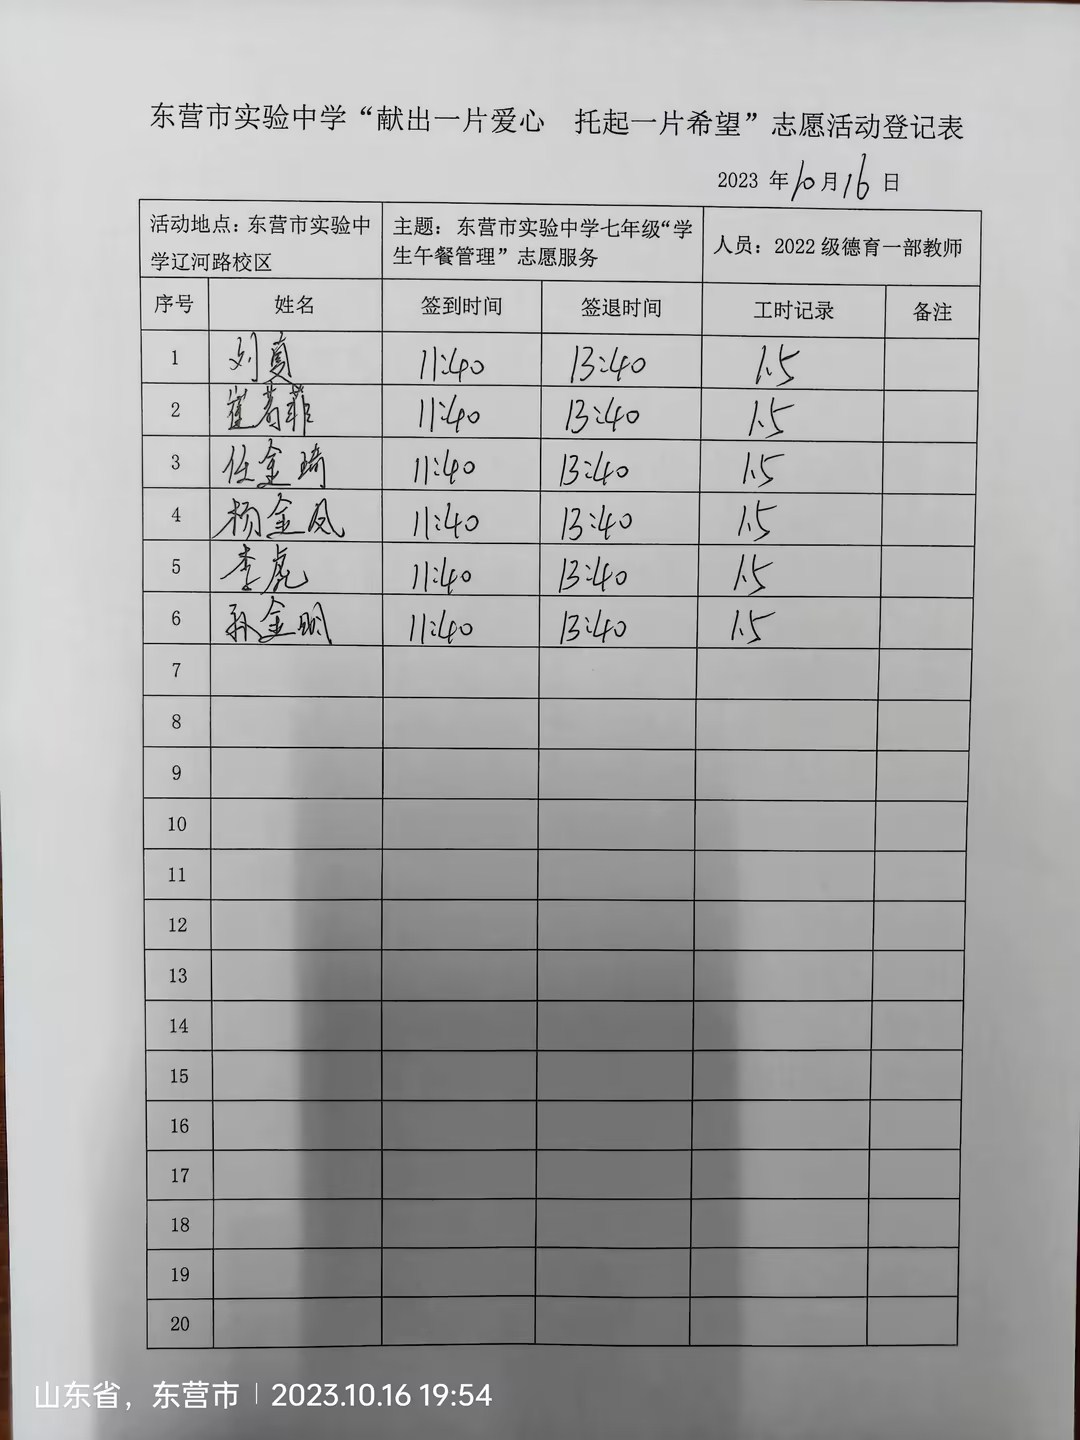 东营市实验中学“献出一片爱心 托起一片希望”志愿活动登记表
2023 年10月16日
活动地点：东营市实验中学辽河路校区 主题：东营市实验中学七年级“学生午餐管理”志愿服务 人员：2022级德育一部教师
序号 姓名 签到时间 签退时间 工时记录 备注
1 刘 11:40 13:40 1.5
2 崔 菲 11:40 13:40 1.5
3 任金琦 11:40 13:40 1.5
4 杨金凤 11:40 13:40 1.5
5 李虎 11:40 13:40 1.5
6 孙金明 11:40 13:40 1.5
7
8
9
10
11
12
13
14
15
16
17
18
19
20
山东省，东营市 | 2023.10.16 19:54